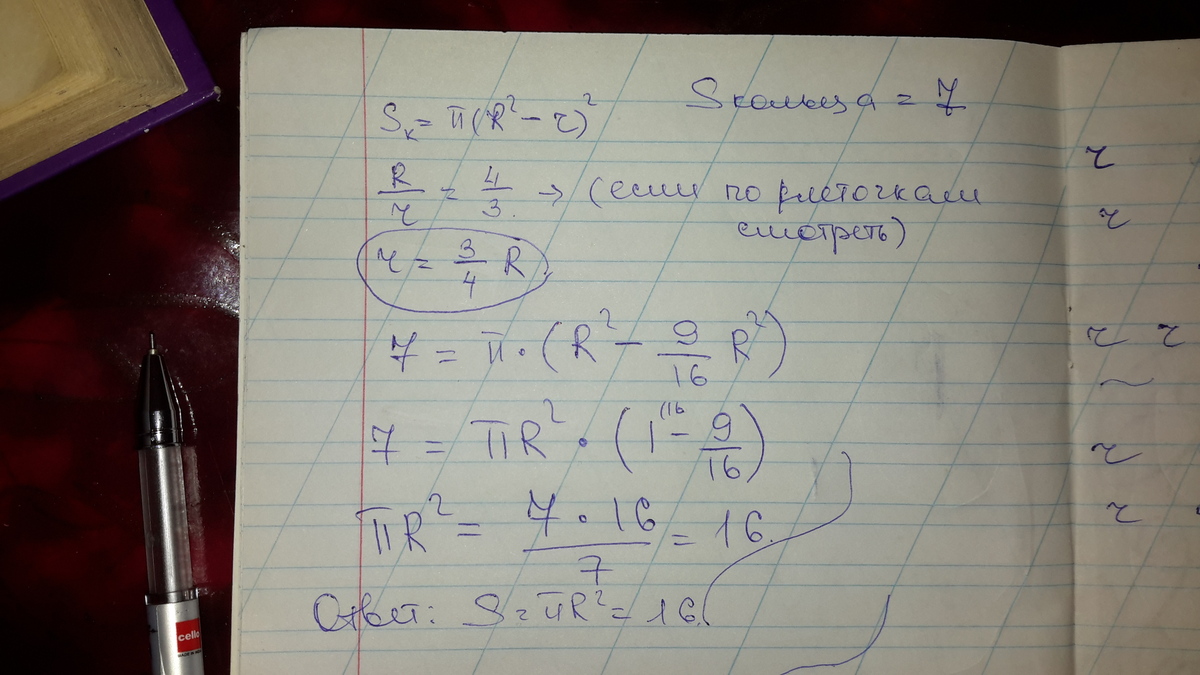 Sкольца = 7
Sк = π(R² - r)²
R/r = 4/3. → (если по клеточкам
смотреть)
r = 3/4 R
7 = π · (R² - 9/16 R²)
7 = πR² · (1 (16 - 9/16)
πR² = 7 · 16 / 7 = 16.
Ответ: S = πR² = 16.
r
r
r r
~
r
r
cello